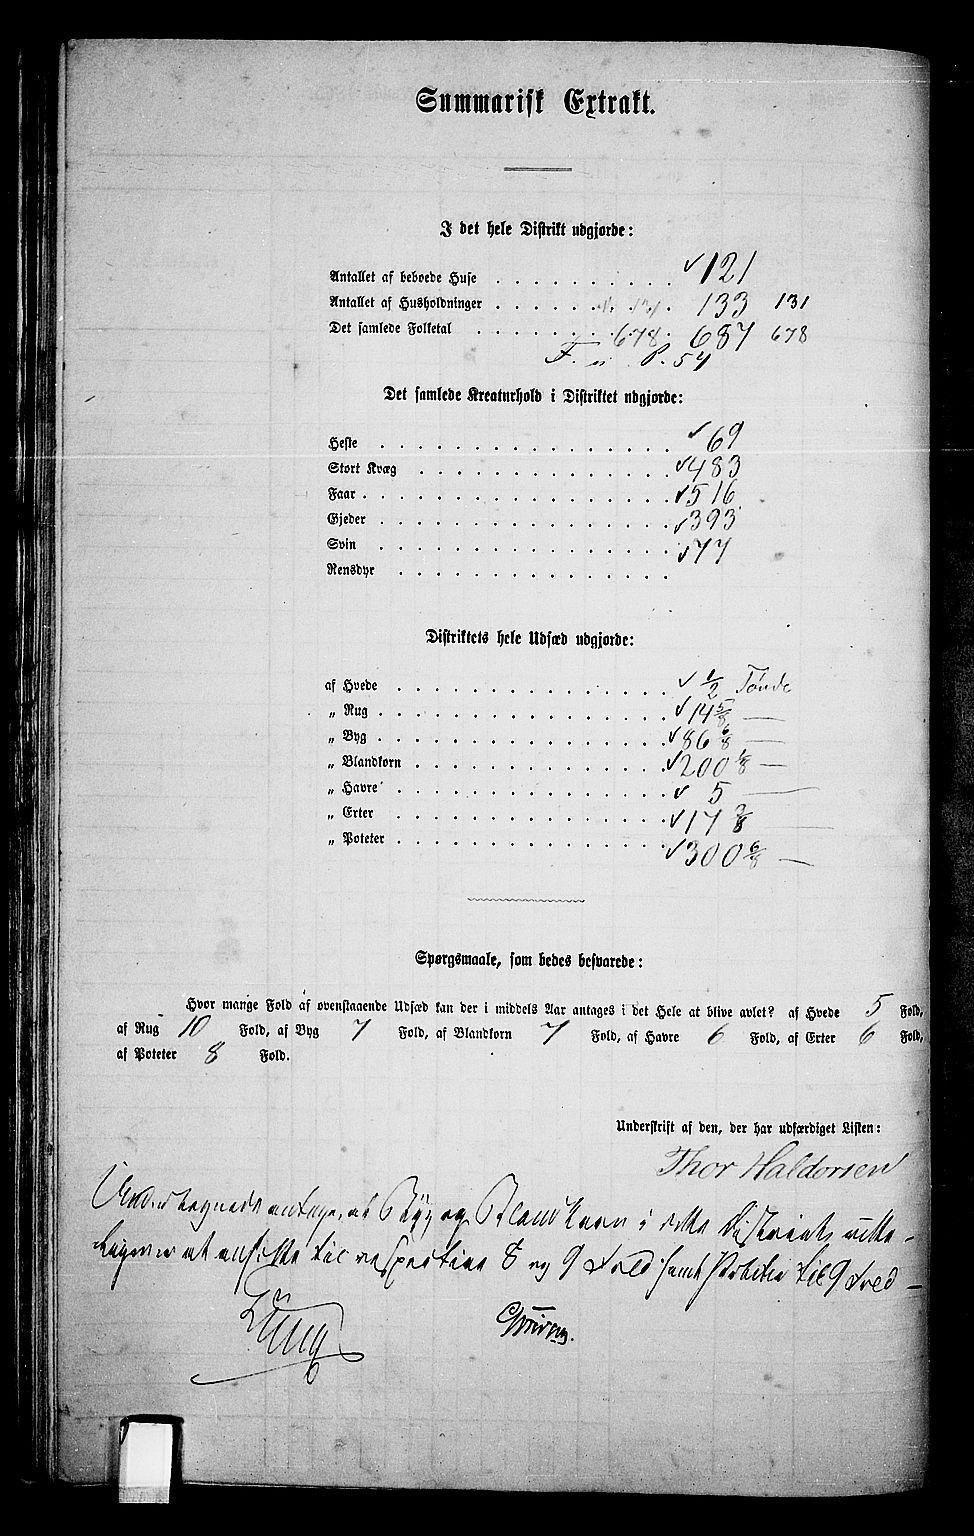 Summarisk Extrakt.
I det hele Distrikt udgjorde:
Antallet af beboede Huse . . . . . . . . . . . ✓121
Antallet af Husholdninger . . . . . . . . . . 131 133 131
Det samlede Folketal . . . . . . . . . . 678 687 678
F. n. P. 57
Det samlede Kreaturhold i Distriktet udgjorde:
Heste . . . . . . . . . . . . . . . . ✓69
Stort Kvæg . . . . . . . . . . . . . . ✓483
Faar . . . . . . . . . . . . . . . . . ✓516
Gjeder . . . . . . . . . . . . . . . . ✓393
Svin . . . . . . . . . . . . . . . . ✓77
Rensdyr . . . . . . . . . . . . . . .
Distriktets hele Udsæd udgjorde:
af Hvede . . . . . . . . . . . . . . . ✓ 1/2 Tønde
„ Rug . . . . . . . . . . . . . . . . ✓14 5/8 —
„ Byg . . . . . . . . . . . . . . . . ✓86 6/8 —
„ Blandkorn . . . . . . . . . . . . . . ✓200 1/8 —
„ Havre . . . . . . . . . . . . . . . ✓ 5 —
„ Erter . . . . . . . . . . . . . . . ✓17 3/8 —
„ Poteter . . . . . . . . . . . . . . . ✓300 6/8 —
Spørgsmaale, som bedes besvarede:
Hvor mange Fold af ovenstaaende Udsæd kan der i middels Aar antages i det Hele at blive avlet? af Hvede 5 Fold,
af Rug 10 Fold, af Byg 7 Fold, af Blandkorn 7 Fold, af Havre 6 Fold, af Erter 6 Fold,
af Poteter 8 Fold.
Underskrift af den, der har udfærdiget Listen:
Thor Haldorsen
Undertegnede antage, at Byg og Blandkorn i dette Distrikt rette-
ligen er at ansætte til respective 8 og 9 Fold samt Poteter til 9 Fold —